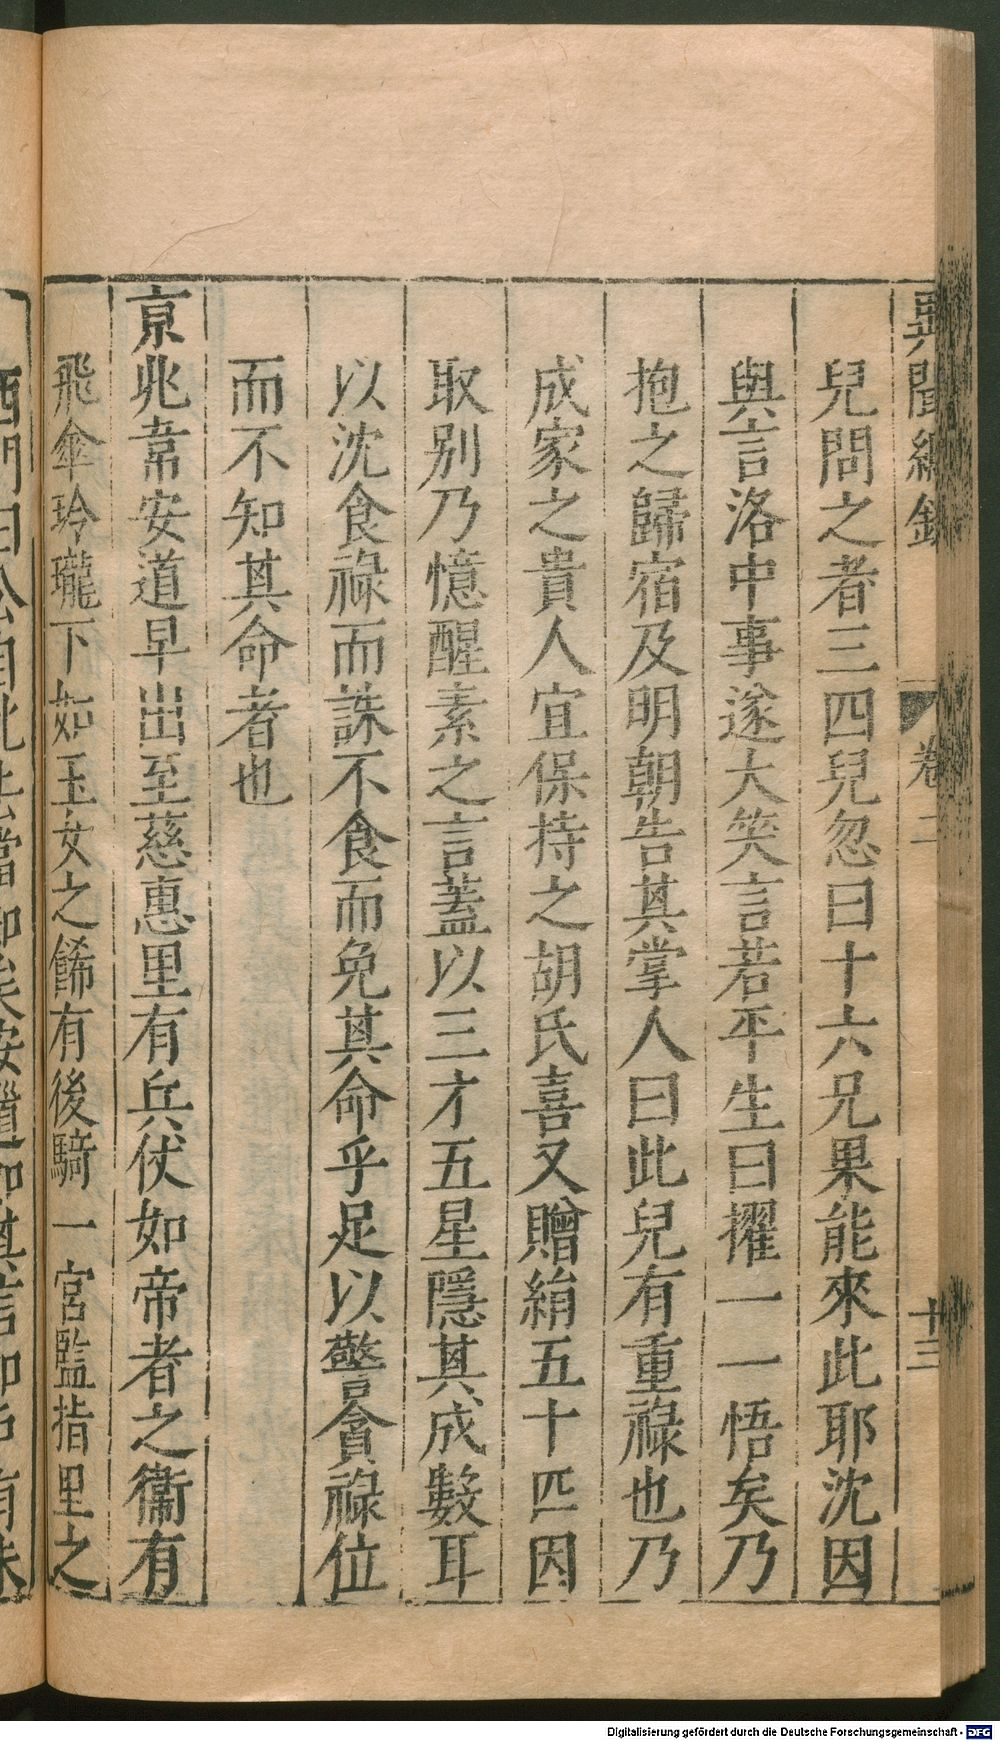 異聞總錄
卷二
十三
兒問之者三四兒忽曰十六兄果能來此耶沈因
與言洛中事遂大笑言若平生曰擢一一悟矣乃
抱之歸宿及明朝告其掌人曰此兒有重祿也乃
成家之貴人宜保持之胡氏喜又贈絹五十匹因
取别乃憶醒素之言蓋以三才五星隱其成數耳
以沈食祿而誅不食而免其命乎足以警貪祿位
而不知其命者也
京兆韋安道早出至慈惠里有兵仗如帝者之衞有
飛傘玲瓏下如玉女之餙有後騎一宮監指里之
Digitalisierung gefördert durch die Deutsche Forschungsgemeinschaft - DFG